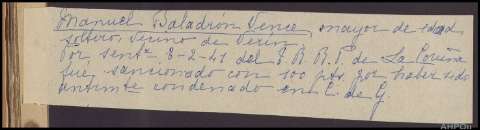 Manuel Baladron Vence mayor de edad
soltero, vecino de Verin
Por sentª 8-2-41 del T. R. R. P. de La Coruña
fue sancionado con 100 pts. por haber sido
antmte condenado en C. de G.
AHPOu